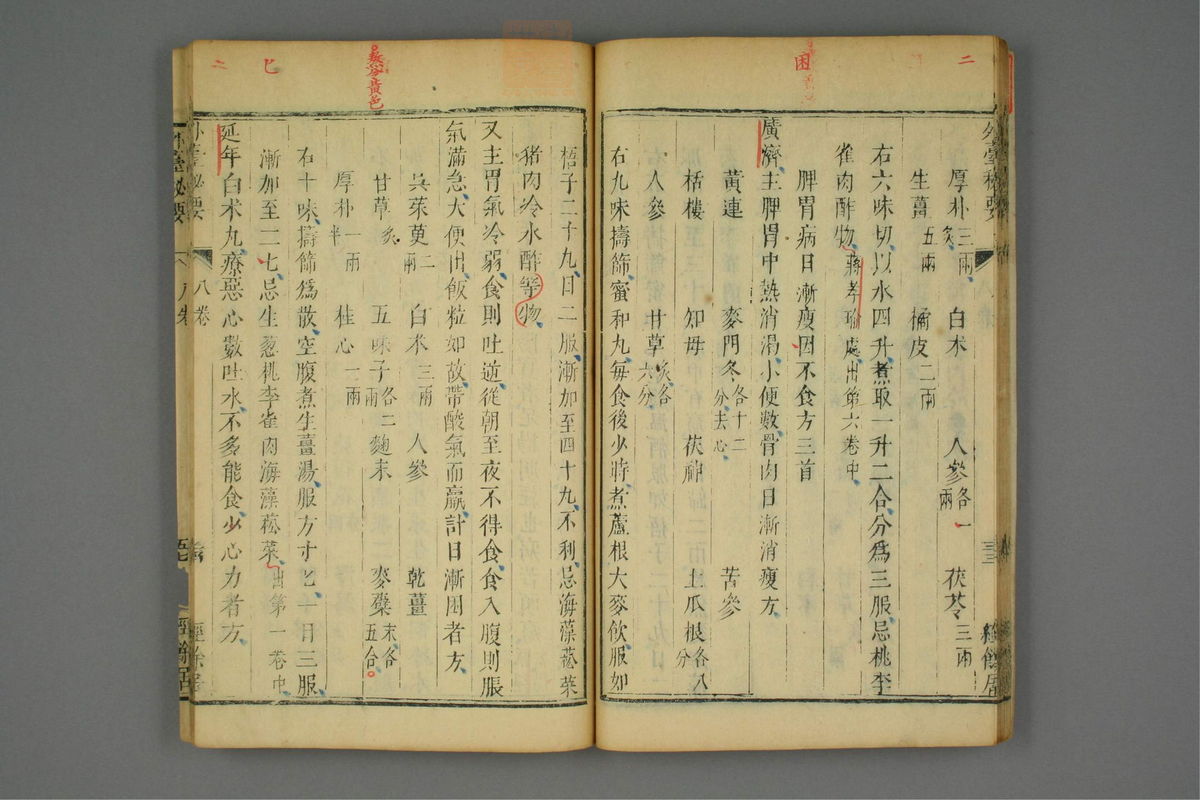 外臺秘要
厚朴炙三兩 白朮 人參各一兩 茯苓三兩
生薑五兩 橘皮二兩
右六味切以水四升煮取一升二合分爲三服忌桃李
雀肉酢物蔣孝瑜處出第六卷中
脾胃病日漸瘦因不食方三首
廣濟主脾胃中熱消渴小便數骨肉日漸消瘦方
黃連 麥門冬各十二分去心 苦參
栝樓 知母 茯神 土瓜根各八分
人參 甘草炙各六分
右九味擣篩蜜和丸每食後少時煮蘆根大麥飲服如
梧子二十丸日二服漸加至四十丸不利忌海藻菘菜
猪肉冷水酢等物
又主胃氣冷弱食則吐逆從朝至夜不得食食入腹則脹
氣滿急大便出飯粒如故帶酸氣而羸計日漸困者方
吳茱萸二兩 白朮三兩 人參 乾薑
甘草炙 五味子各二兩 麴末 麥糵末各五合
厚朴一兩半 桂心一兩
右十味擣篩爲散空腹煮生薑湯服方寸匕一日三服
漸加至二七忌生葱桃李雀肉海藻菘菜出第一卷中
延年白朮丸療惡心數吐水不多能食少心力者方
外臺秘要
八卷
經餘居
困
二
七
二